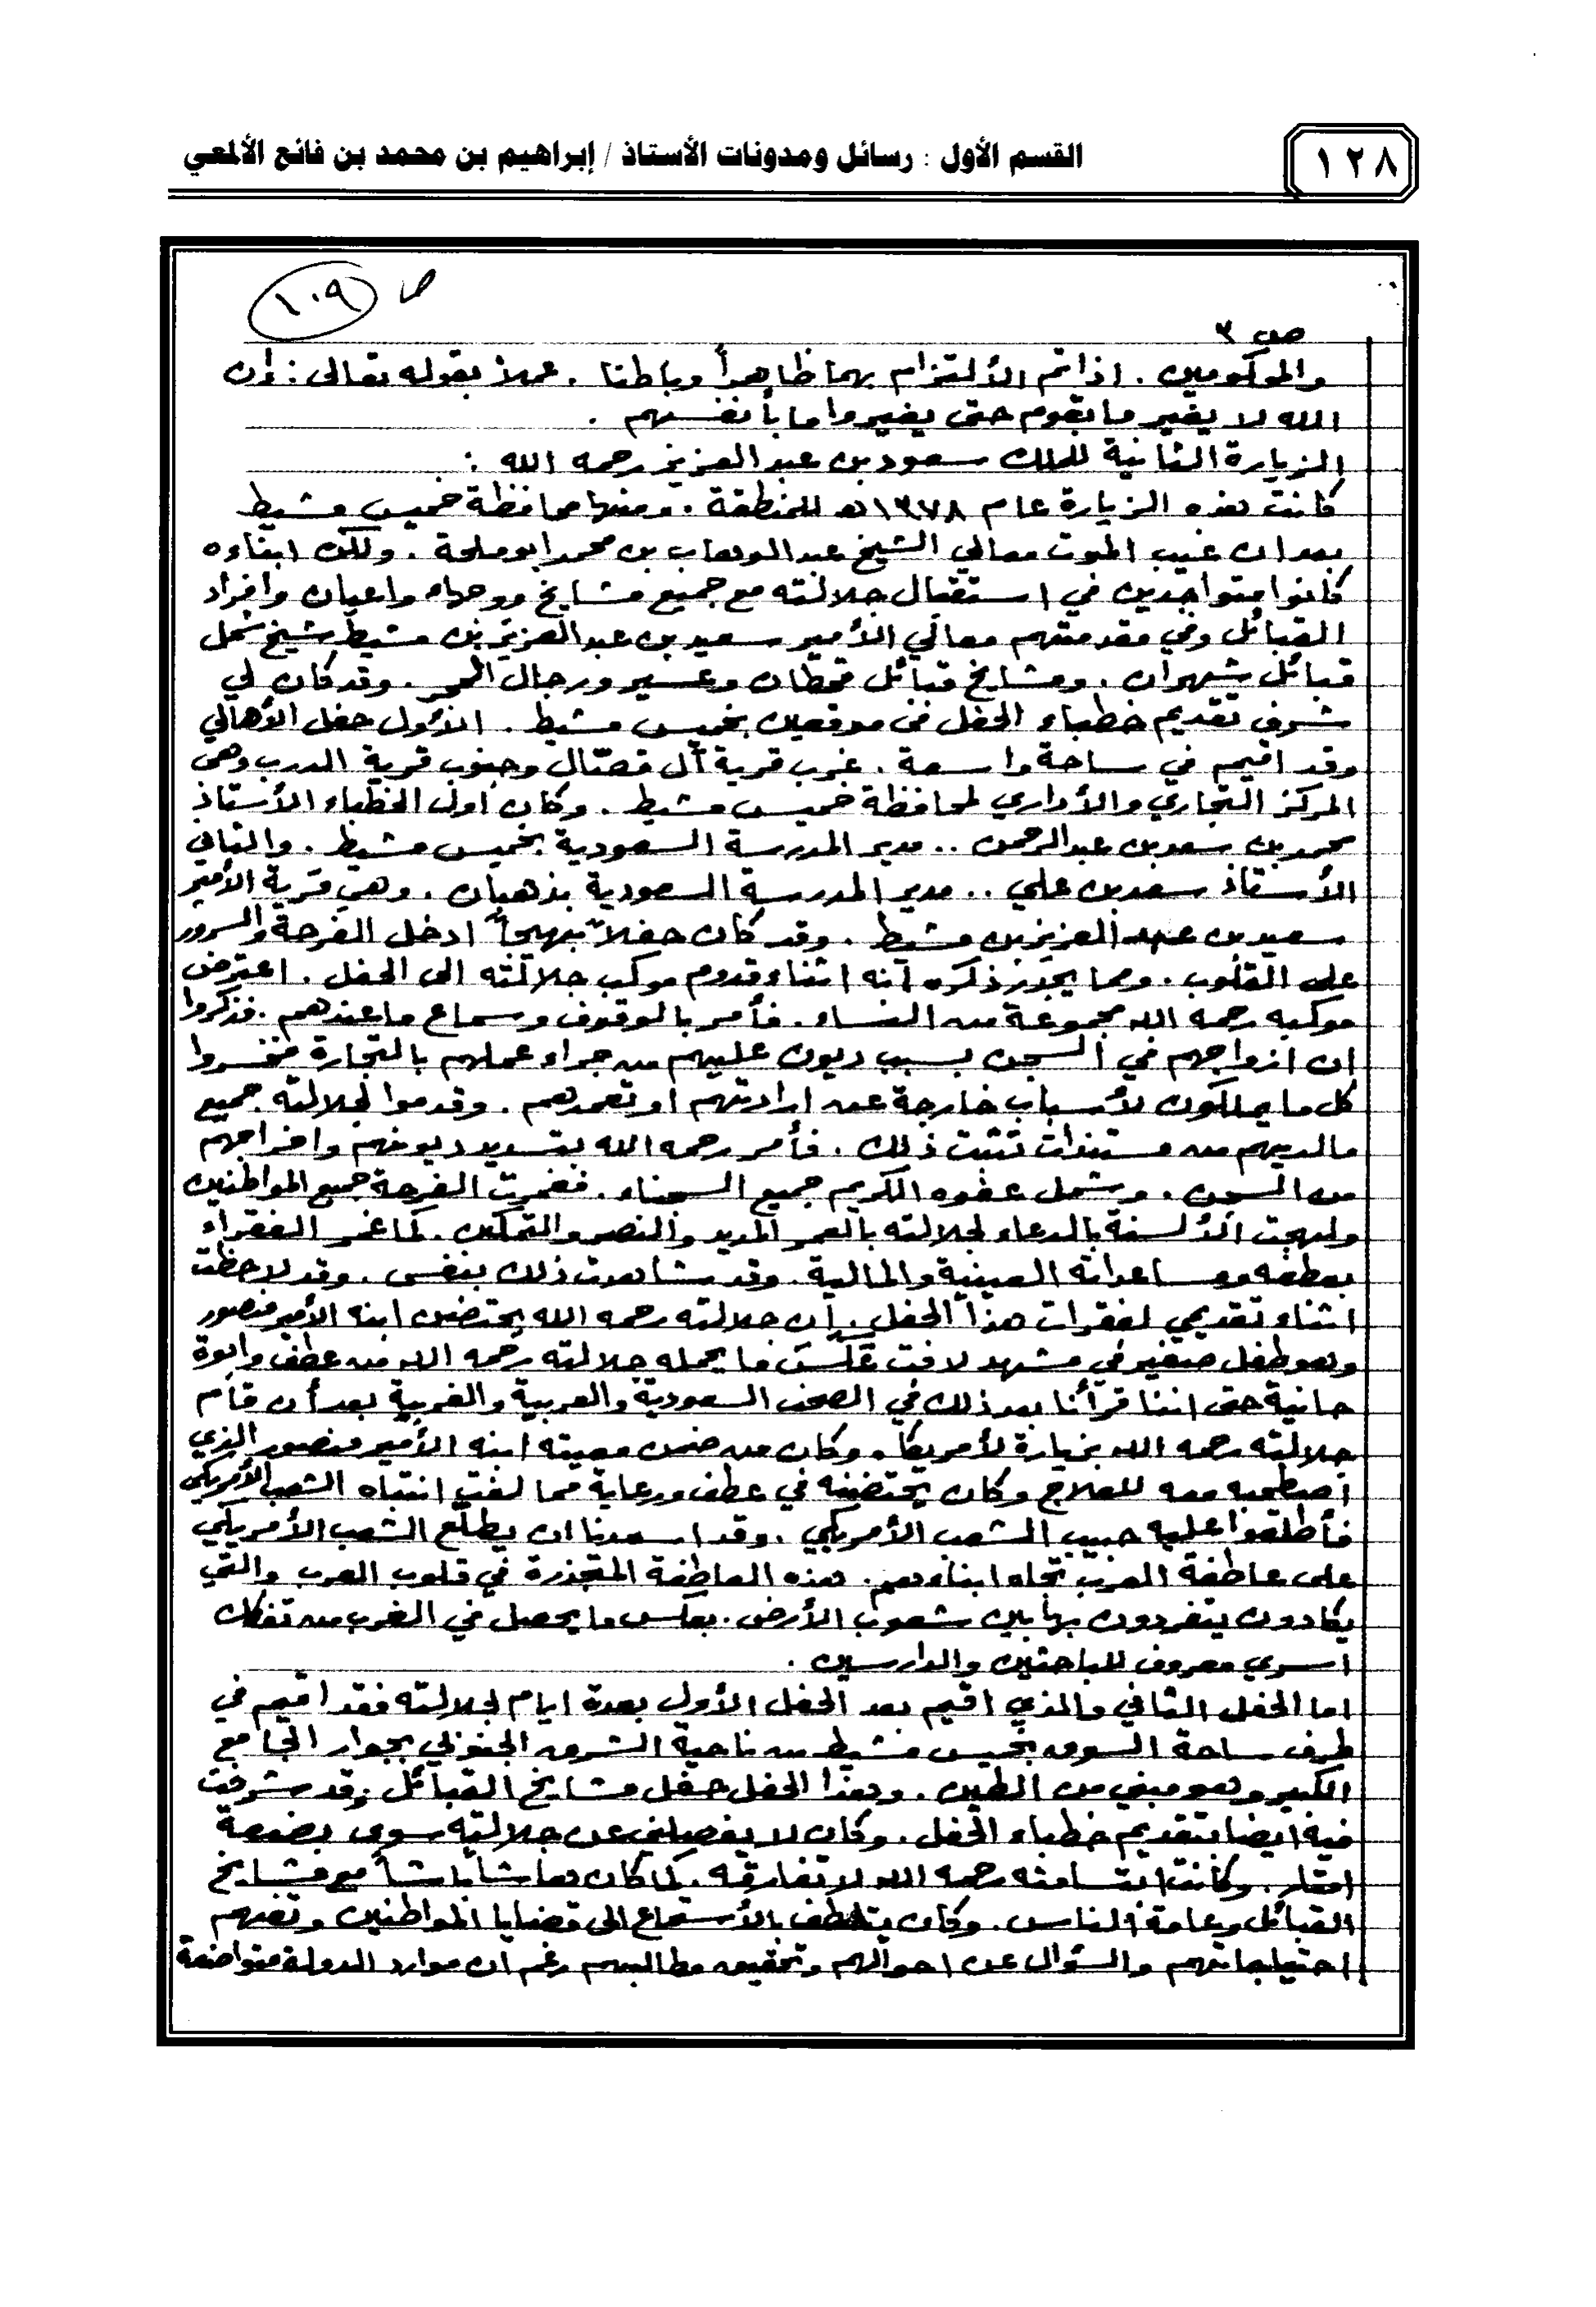 ١٢٨
القسم الأول : رسائل ومدونات الأستاذ / إبراهيم بن محمد بن فائع الألمعي
ص ١٠٩
ص ٣
والمحكومين . اذا تم الألتزام بهما ظاهراً وباطنا . عملاً بقوله تعالى : إن
الله لا يغير ما بقوم حتى يغيروا ما بأنفسهم .
الزيارة الثانية للملك سعود بن عبد العزيز رحمه الله :
كانت هذه الزيارة عام ١٣٧٨هـ للمنطقة . ومنها محافظة خميس مشيط
بعد ان غيب الموت معالي الشيخ عبد الوهاب بن محمد ابو ملحة . ولكن ابناءه
كانوا متواجدين في استقبال جلالته مع جميع مشايخ ووجهاء واعيان وافراد
القبائل وفي مقدمتهم معالي الأمير سعيد بن عبد العزيز بن مشيط شيخ شمل
قبائل شهران . ومشايخ قبائل قحطان وعسير ورجال الحجر . وقد كان لي
شرف تقديم خطباء الحفل في موقعين بخميس مشيط . الأول حفل الأهالي
وقد اقيم في ساحة واسعة . غرب قرية آل قصّال وجنوب قرية الدرب وهي
المركز التجاري والأداري لمحافظة خميس مشيط . وكان اول الخطباء الأستاذ
محمد بن سعد بن عبد الرحمن .. مدير المدرسة السعودية بخميس مشيط . والثاني
الأستاذ سعد بن علي .. مدير المدرسة السعودية بذهبان . وهي قرية الأمير
سعيد بن عبد العزيز بن مشيط . وقد كان حفلاً بهيجاً ادخل الفرحة والسرور
على القلوب . ومما يجدر ذكره أنه اثناء قدوم موكب جلالته الى الحفل . اعترض
موكبه رحمه الله مجموعة من النساء . فأمر بالوقوف وسماع ما عندهم . فذكروا
ان ازواجهم في السجن بسبب ديون عليهم من جراء عملهم بالتجارة فخسروا
كل ما يملكون لأسباب خارجة عن ارادتهم او تعمدهم . وقدموا لجلالته جميع
مالديهم من مستندات تثبت ذلك . فأمر رحمه الله بتسديد ديونهم وافراجهم
من السجن . وشمل عفوه الكريم جميع السجناء . فغمرت الفرحة جميع المواطنين
ولهجت الألسنة بالدعاء لجلالته بالعمر المديد والنصر والتمكين . كما غمر الفقراء
بعطفه ومساعداته العينية والمالية . وقد شاهدت ذلك بنفسي . وقد لاحظت
اثناء تقديمي لفقرات هذا الحفل . أن جلالته رحمه الله يحتضن ابنه الأمير منصور
وهو طفل صغير في مشهد لافت عكس ما يحمله جلالته رحمه الله من عطف وابوة
حانية حتى اننا قرأنا بعد ذلك في الصحف السعودية والعربية والغربية بعد أن قام
جلالته رحمه الله بزيارة لأمريكا . وكان من ضمن معيته ابنه الأمير منصور الذي
اصطحبه معه للعلاج وكان يحتضنه في عطف ورعاية مما لفت انتباه الشعب الأمريكي
فأطلقوا عليه حبيب الشعب الأمريكي . وقد اسعدنا ان يطلع الشعب الأمريكي
على عاطفة العرب تجاه ابناءهم . هذه العاطفة المتجذرة في قلوب العرب والتي
يكادون يتفردون بها بين شعوب الأرض . بعكس ما يحصل في الغرب من تفكك
اسري معروف للباحثين والدارسين .
اما الحفل الثاني والذي اقيم بعد الحفل الأول بعدة ايام لجلالته فقد اقيم في
طرف ساحة السوق بخميس مشيط من ناحية الشرق الجنوبي بجوار الجامع
الكبير وهو مبني من الطين . وهذا الحفل حفل مشايخ القبائل . وقد شرفت
فيه ايضا بتقديم خطباء الحفل . وكان لا يفصلني عن جلالته سوى بضعة
امتار . وكانت ابتسامته رحمه الله لا تفارقه . كما كان هاشا باشاً مع مشايخ
القبائل وعامة الناس . وكان يتلطف بالأستماع الى قضايا المواطنين وتفهم
احتياجاتهم والسؤال عن احوالهم وتحقيق مطالبهم رغم ان موارد الدولة متواضعة